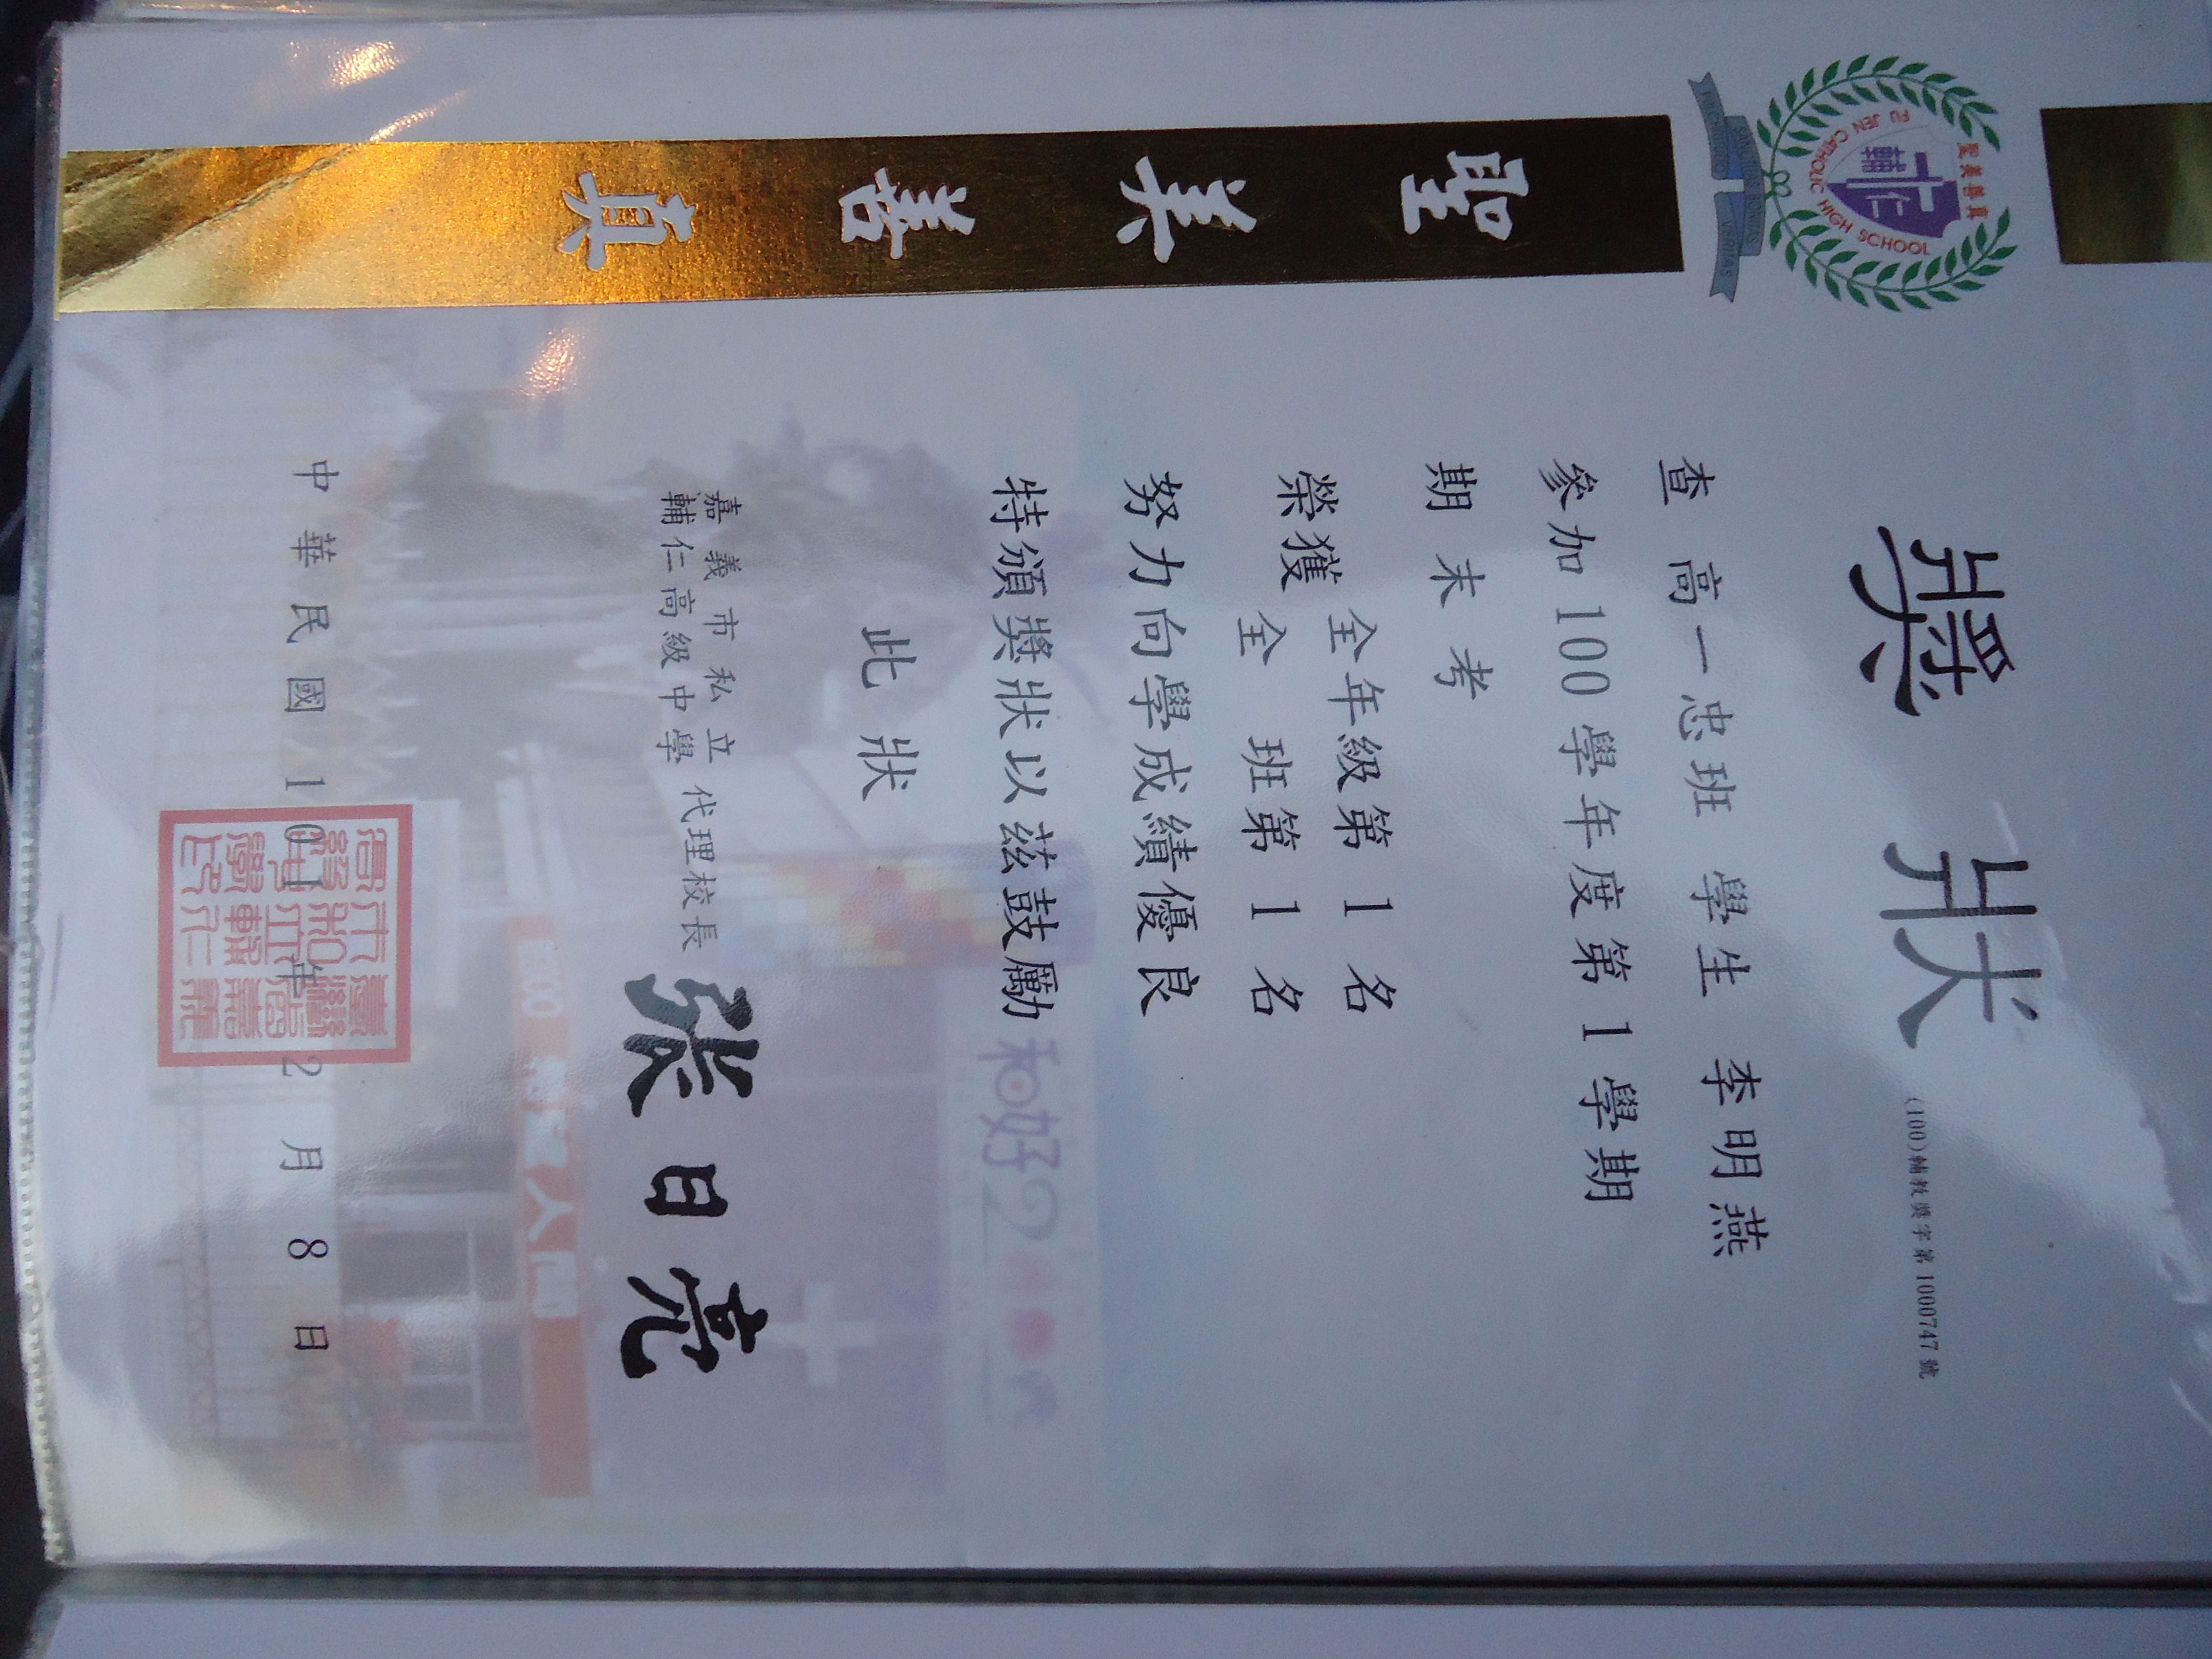 獎狀
(100)輔教獎字第1000747號
查 高一忠班 學生 李明燕
參加100學年度第1學期
期末考
榮獲
全年級第1名
全班第1名
努力向學成績優良
特頒獎狀以茲鼓勵
此狀
嘉義市私立
輔仁高級中學
代理校長
張日亮
中華民國101年2月8日
聖美善真
FU JEN CATHOLIC HIGH SCHOOL
輔仁
聖美善真
VERITAS
和好2